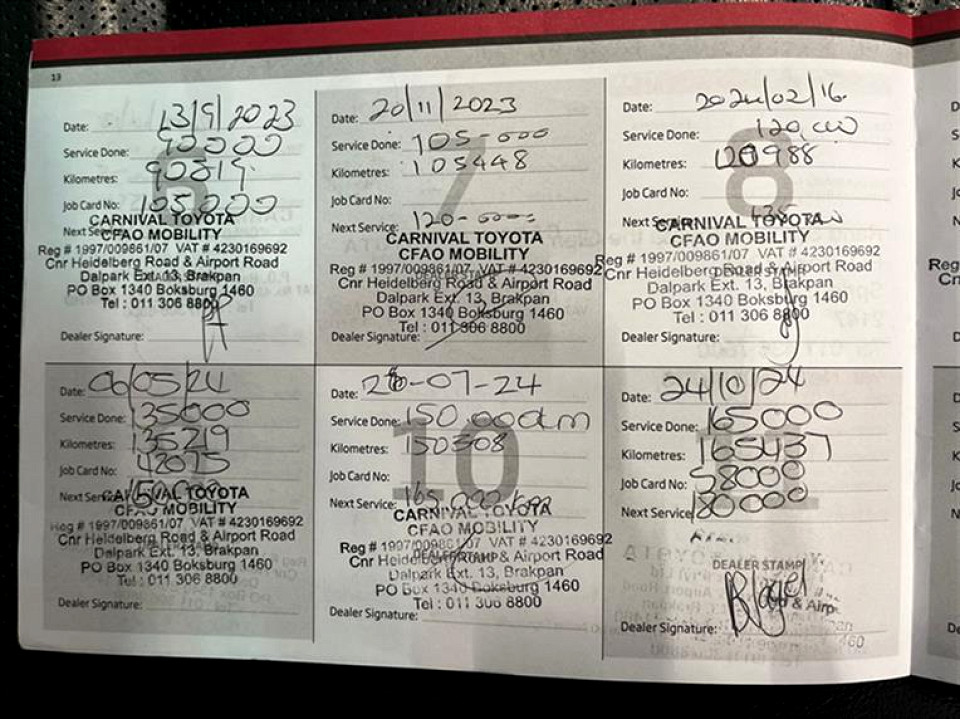 13
Date: 13/9/2023
Service Done: 90000
Kilometres: 90819
Job Card No: 105000
CARNIVAL TOYOTA
Next Service: CFAO MOBILITY
Reg # 1997/009861/07 VAT # 4230169692
Cnr Heidelberg Road & Airport Road
Dalpark Ext. 13, Brakpan
PO Box 1340 Boksburg 1460
Tel : 011 306 8800
Dealer Signature:
7
Date: 20/11/2023
Service Done: 105-000
Kilometres: 105448
Job Card No:
Next Service: 120-000
CARNIVAL TOYOTA
CFAO MOBILITY
Reg # 1997/009861/07 VAT # 4230169692
Cnr Heidelberg Road & Airport Road
Dalpark Ext. 13, Brakpan
PO Box 1340 Boksburg 1460
Tel : 011 306 8800
Dealer Signature:
8
Date: 2024/02/16
Service Done: 120,000
Kilometres: 120988
Job Card No:
Next Service:
CARNIVAL TOYOTA
CFAO MOBILITY
Reg # 1997/009861/07 VAT # 4230169692
Cnr Heidelberg Road & Airport Road
Dalpark Ext. 13, Brakpan
PO Box 1340 Boksburg 1460
Tel : 011 306 8800
Dealer Signature:
Date: 06/05/24
Service Done: 135000
Kilometres: 135219
Job Card No: 42075
Next Service: 150000
CARNIVAL TOYOTA
CFAO MOBILITY
Reg # 1997/009861/07 VAT # 4230169692
Cnr Heidelberg Road & Airport Road
Dalpark Ext. 13, Brakpan
PO Box 1340 Boksburg 1460
Tel : 011 306 8800
Dealer Signature:
10
Date: 26-07-24
Service Done: 150.000km
Kilometres: 150308
Job Card No:
Next Service: 165,000 km
CARNIVAL TOYOTA
CFAO MOBILITY
Reg # 1997/009861/07 VAT # 4230169692
Cnr Heidelberg Road & Airport Road
Dalpark Ext. 13, Brakpan
PO Box 1340 Boksburg 1460
Tel : 011 306 8800
Dealer Signature:
Date: 24/10/24
Service Done: 165000
Kilometres: 165437
Job Card No: 58000
Next Service: 180000
DEALER STAMP
Dealer Signature: